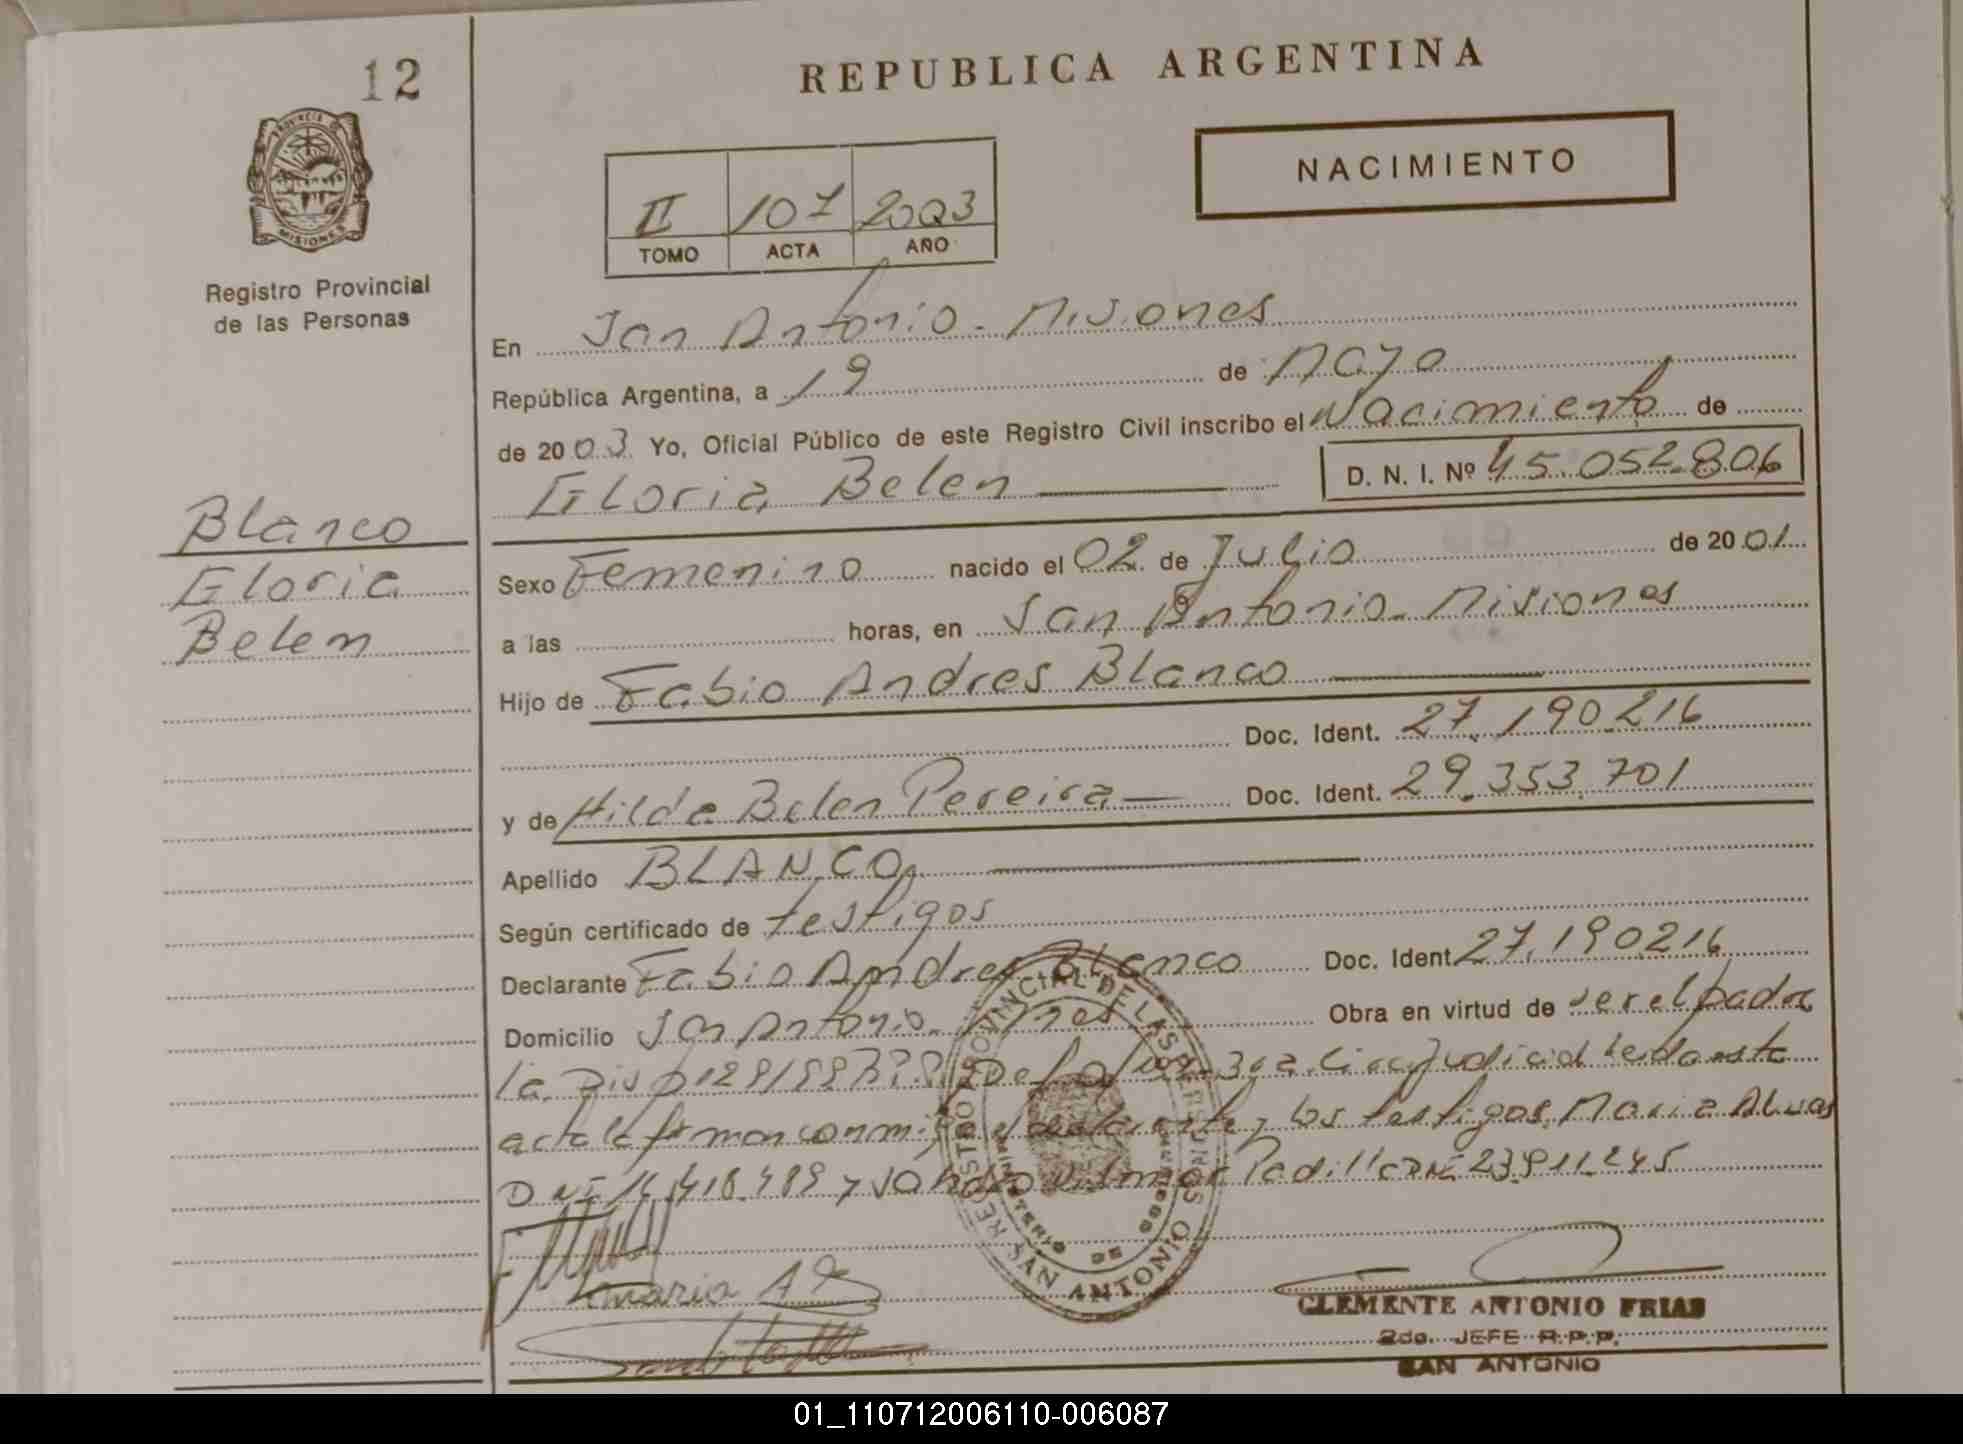 12
REPUBLICA ARGENTINA
PROVINCIA DE
MISIONES
NACIMIENTO
II 107 2003
TOMO ACTA AÑO
Registro Provincial
de las Personas
En San Antonio - Misiones
República Argentina, a 19 de Mayo
de 2003 Yo, Oficial Público de este Registro Civil inscribo el Nacimiento de
Gloria Belen D. N. I. Nº 45.052.806
Blanco
Gloria
Belen
Sexo Femenino nacido el 02 de Julio de 2001
a las horas, en San Antonio - Misiones
Hijo de Fabio Andres Blanco
Doc. Ident. 27.190.216
y de Hilda Belen Pereira Doc. Ident. 29.353.701
Apellido BLANCO
Según certificado de testigos
Declarante Fabio Andres Blanco Doc. Ident. 27.190.216
Domicilio San Antonio - Mnes Obra en virtud de ser el padre
la Disp 3ra. Circ Judicial esta
acta la firman conmigo el declarante y los testigos Maria
DNI y Padilla DNI 23.911.245
REGISTRO PROVINCIAL DE LAS PERSONAS
MINISTERIO DE GOBIERNO
SAN ANTONIO
Maria
CLEMENTE ANTONIO FRIAS
2do. JEFE R.P.P.
SAN ANTONIO
01_110712006110-006087